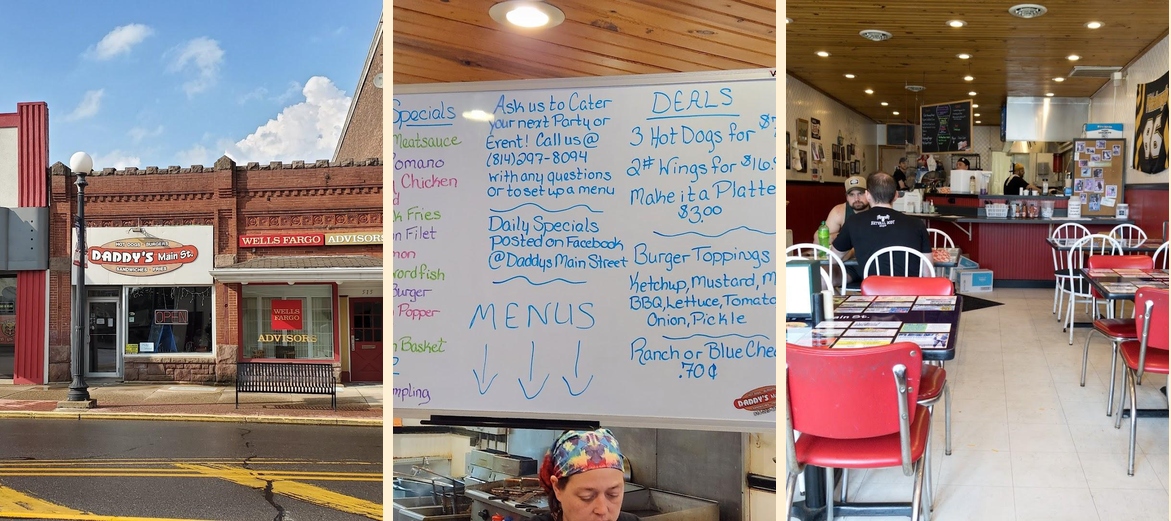 HOT DOGS · BURGERS
DADDY'S Main St.
SANDWICHES · FRIES
WELLS FARGO ADVISORS
OPEN
WELLS
FARGO
ADVISORS
Specials
Meatsauce
Romano
Chicken
Fries
Filet
Burger
Popper
Basket
Ask us to Cater
your next Party or
Event! Call us @
(814)297-8094
with any questions
or to set up a menu
Daily Specials
posted on Facebook
@DaddysMainStreet
MENUS
DEALS
3 Hot Dogs for
2# Wings for $16.
Make it a Platte
$3.00
Burger Toppings
Ketchup, Mustard, M
BBQ, Lettuce, Tomato
Onion, Pickle
Ranch or Blue Chee
.70¢
DADDY'S
in St.